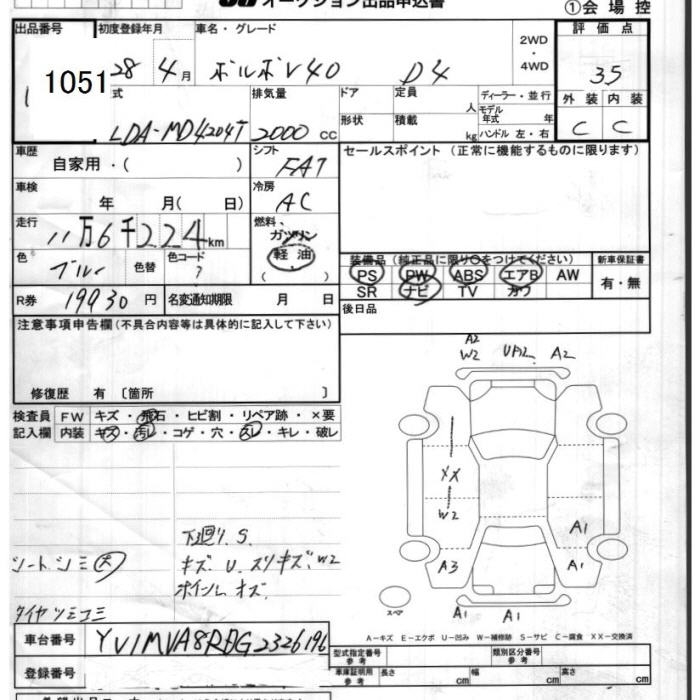 オークション出品申込書
①会場控
出品番号 初度登録年月 車名・グレード 2WD・4WD 評価点
1051 28年4月 ボルボV40 D4 3.5
式 排気量 ドア 定員 人 ディーラー・並行 外装 内装
LDA-MD4204T 2000cc 形状 積載 kg モデル年式 年 ハンドル 左・右 C C
車歴 シフト セールスポイント(正常に機能するものに限ります)
自家用・( ) FAT
車検 冷房
年 月( 日) AC
走行 燃料
11万6千224km ガソリン
色 色替 色コード 軽油
ブルー ? ( )
装備品(純正品に限り○をつけてください) 新車保証書
PS PW ABS エアB AW 有・無
SR ナビ TV カワ
R券 19930円 名変通知期限 月 日 後日品
注意事項申告欄(不具合内容等は具体的に記入して下さい)
修復歴 有 〔箇所 〕
検査員 FW キズ・飛石・ヒビ割・リペア跡・×要
記入欄 内装 キズ・汚レ・コゲ・穴・スレ・キレ・破レ
A2
W2 A2
XX
W2
A1
A3 A1
スペア A1 A1
下廻り.S.
シートシミ大 キズ.U.スリキズ.W2
タイヤツミコミ
A-キズ E-エクボ U-凹み W-補修跡 S-サビ C-腐食 XX-交換済
車台番号 YV1MVA8RDG2326196
型式指定番号 参考 類別区分番号 参考
登録番号 車庫証明用 参考 長さ cm 幅 cm 高さ cm